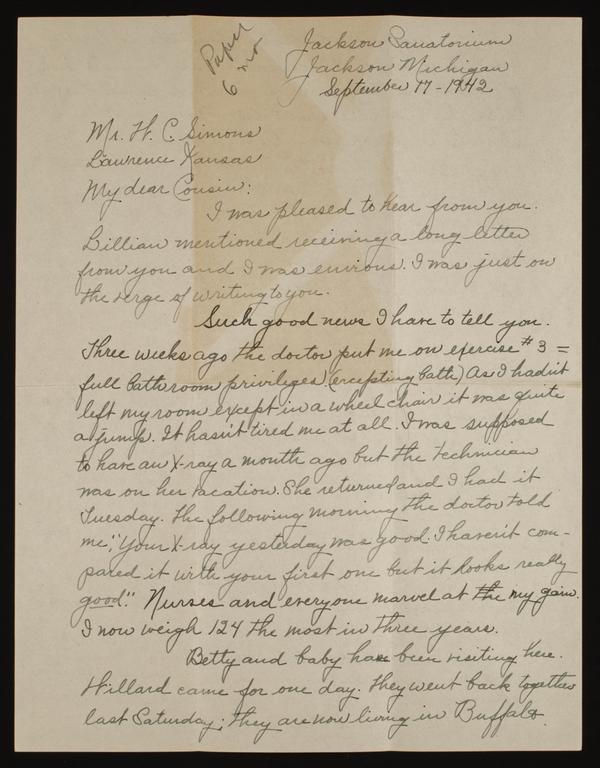 Paper
6 mo
Jackson Sanatorium
Jackson Michigan
September 17-1942
Mr. H. C. Simons
Lawrence Kansas
My dear Cousin:
I was pleased to hear from you.
Lillian mentioned receiving a long letter
from you and I was envious. I was just on
the verge of writing to you.
Such good news I have to tell you.
Three weeks ago the doctor put me on exercise #3 =
full bathroom privileges. (excepting bath) As I hadn't
left my room except in a wheel chair it was quite
a jump. It hasn't tired me at all. I was supposed
to have an X-ray a month ago but the technician
was on her vacation. She returned and I had it
Tuesday. The following morning the doctor told
me, "Your X-ray yesterday was good. I haven't com-
pared it with your first one but it looks really
good." Nurses and everyone marvel at the my gain.
I now weigh 124 the most in three years.
Betty and baby have been visiting here.
Willard came for one day. They went back together
last Saturday; they are now living in Buffalo.